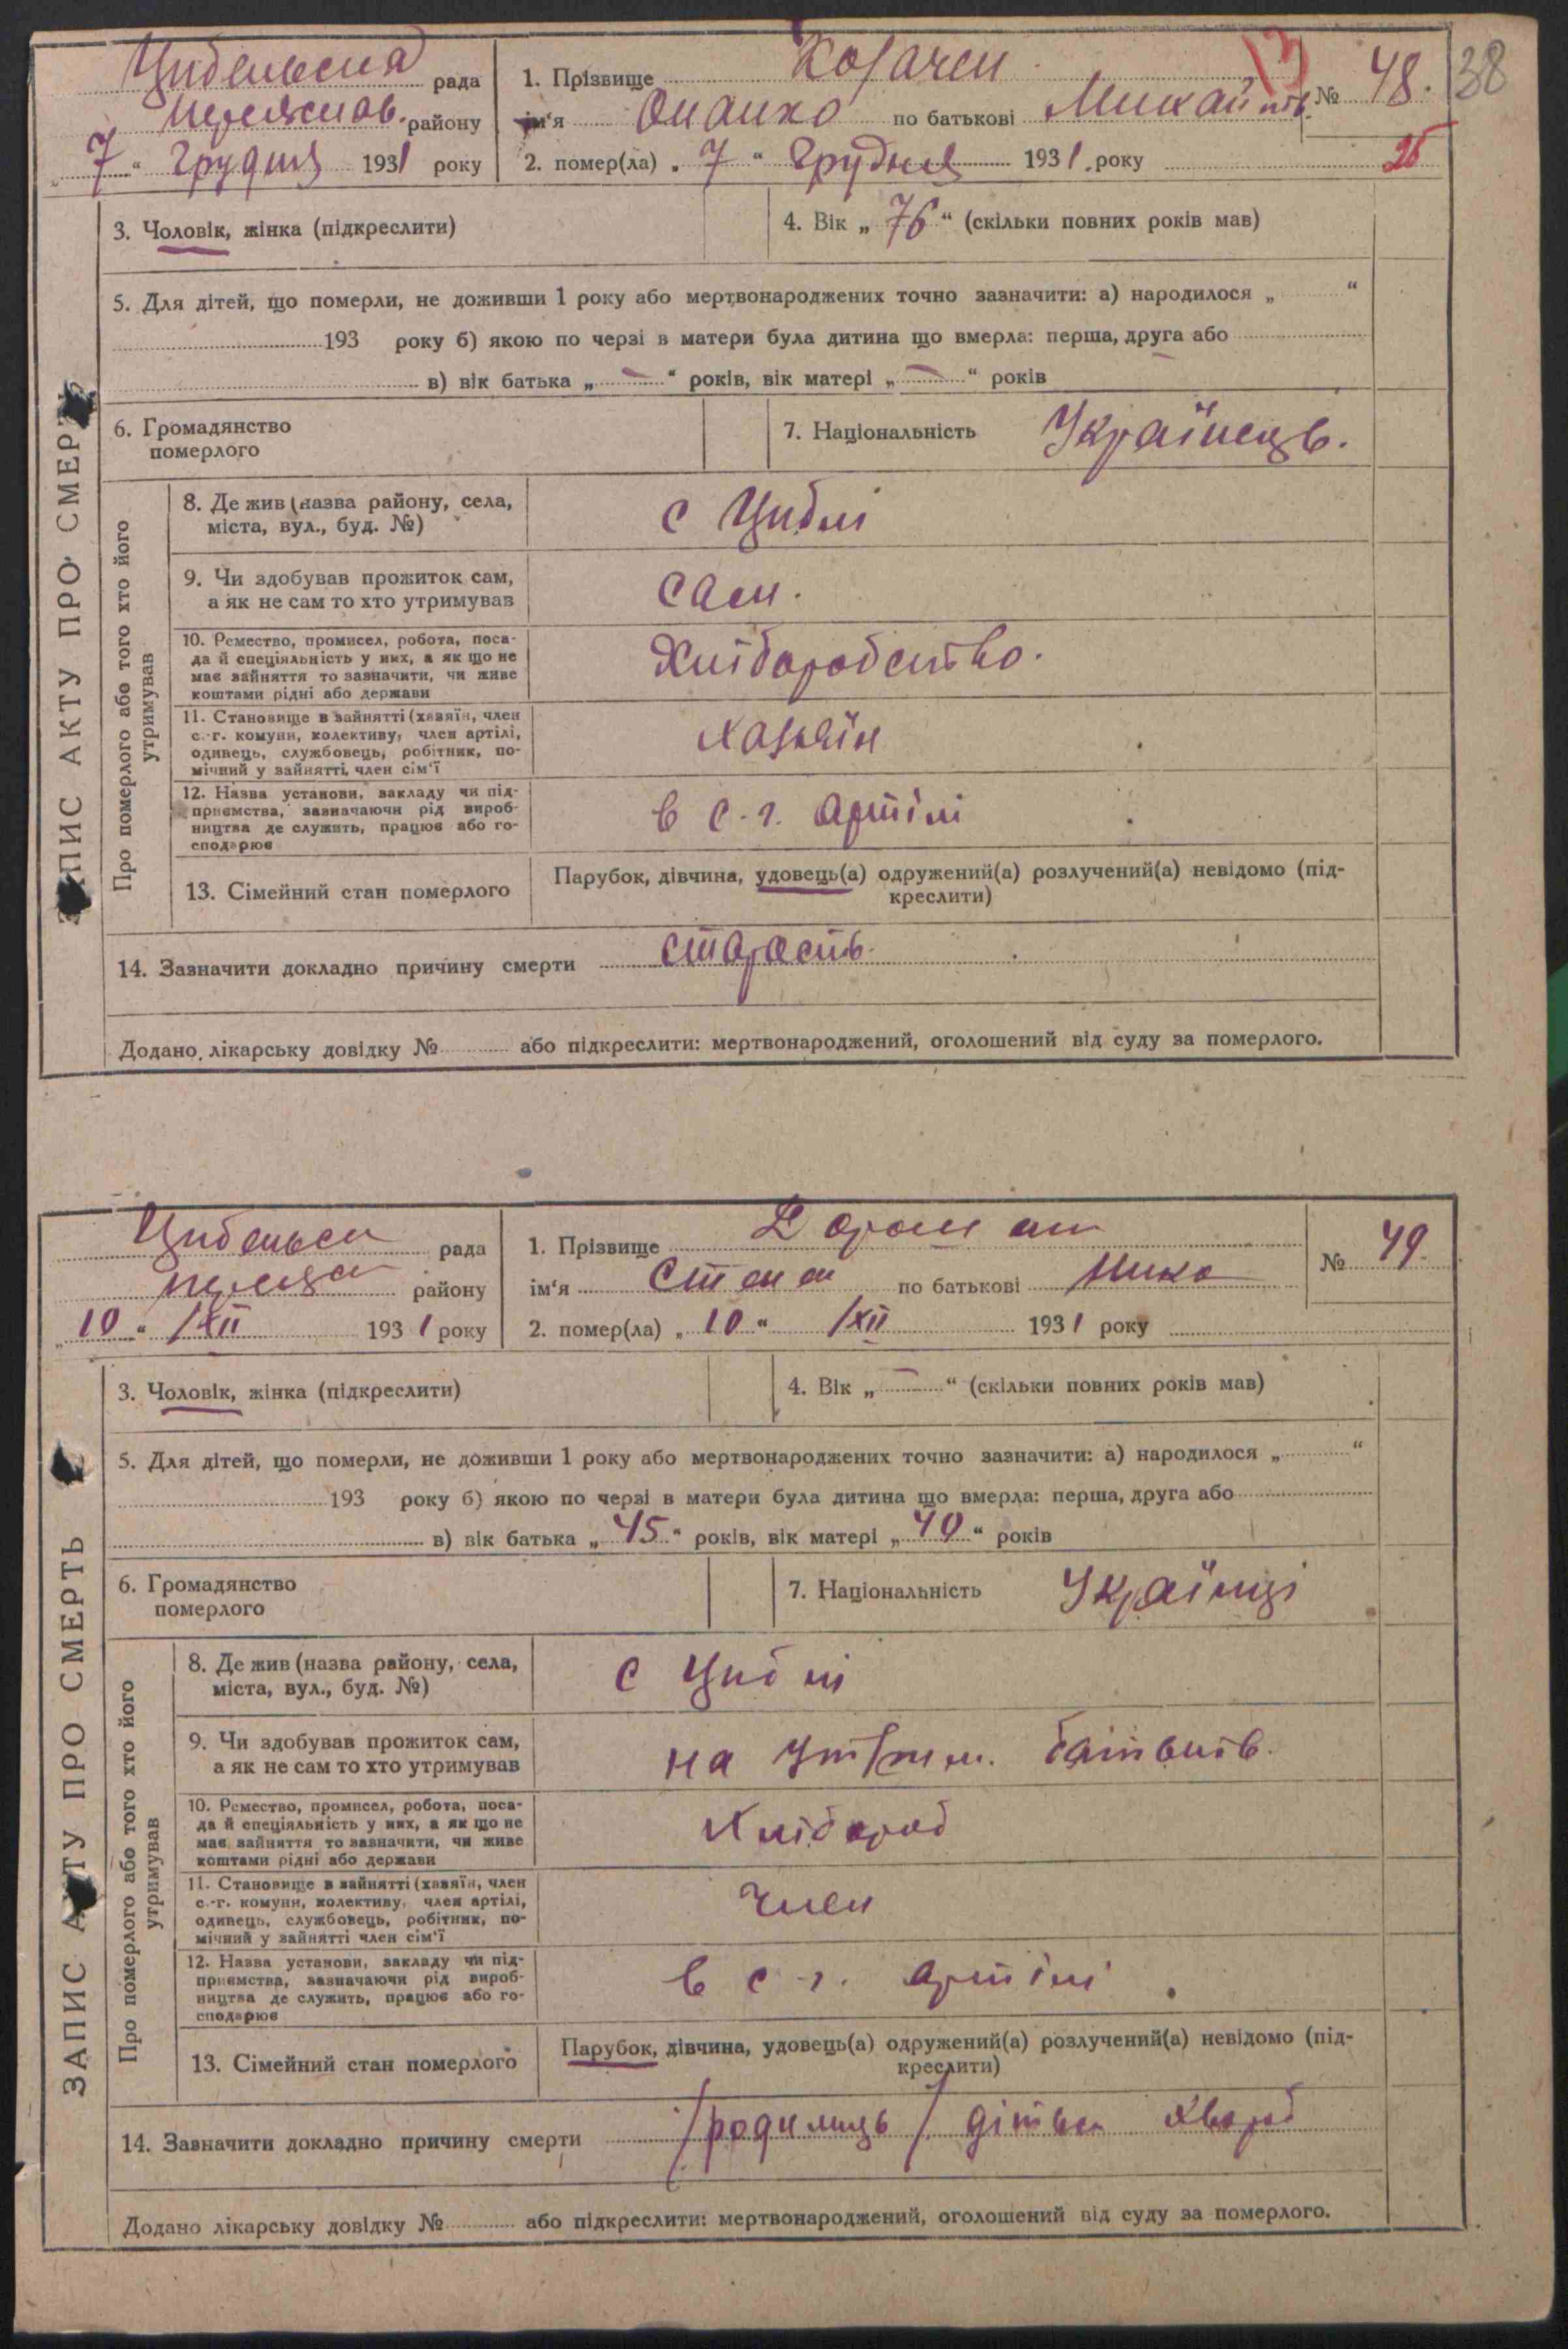 38
Цибельська рада
Переяслав. району
„ 7 “ Грудня 1931 року
1. Прізвище Козачен
№ 48.
ім‘я Опанко по батькові Михайлов.
2. помер(ла) „ 7 “ Грудня 1931. року
26
ЗАПИС АКТУ ПРО СМЕРТЬ
3. Чоловік, жінка (підкреслити)
4. Вік „ 76 “ (скільки повних років мав)
5. Для дітей, що померли, не доживши 1 року або мертвонароджених точно зазначити: а) народилося „ “
193 року б) якою по черзі в матери була дитина що вмерла: перша, друга або
в) вік батька „ — “ років, вік матері „ — “ років
6. Громадянство
померлого
7. Національність Українець.
Про померлого або того хто його
утримував
8. Де жив (назва району, села,
міста, вул., буд. №)
с Циблі
9. Чи здобував прожиток сам,
а як не сам то хто утримував
сам.
10. Ремество, промисел, робота, поса-
да й спеціяльність у них, а як що не
має зайняття то зазначити, чи живе
коштами рідні або держави
Хліборобство.
11. Становище в зайнятті (хазяїн, член
с.-г. комуни, колективу, член артілі,
одинець, службовець, робітник, по-
мічний у зайнятті, член сім‘ї
Хазяїн
12. Назва установи, закладу чи під-
приємства, зазначаючи рід вироб-
ництва де служить, працює або го-
сподарює
в с.-г. артілі
13. Сімейний стан померлого
Парубок, дівчина, удовець(а) одружений(а) розлучений(а) невідомо (під-
креслити)
14. Зазначити докладно причину смерти старость.
Додано лікарську довідку № або підкреслити: мертвонароджений, оголошений від суду за померлого.
Цибельськ рада
району
„ 10 “ /XII 1931 року
1. Прізвище
№ 49.
ім‘я Степан по батькові Мико
2. помер(ла) „ 10 “ /XII 1931 року
ЗАПИС АКТУ ПРО СМЕРТЬ
3. Чоловік, жінка (підкреслити)
4. Вік „ — “ (скільки повних років мав)
5. Для дітей, що померли, не доживши 1 року або мертвонароджених точно зазначити: а) народилося „ “
193 року б) якою по черзі в матери була дитина що вмерла: перша, друга або
в) вік батька „ 45 “ років, вік матері „ 40 “ років
6. Громадянство
померлого
7. Національність Українці
Про померлого або того хто його
утримував
8. Де жив (назва району, села,
міста, вул., буд. №)
с Циблі
9. Чи здобував прожиток сам,
а як не сам то хто утримував
на утрим. батьків.
10. Ремество, промисел, робота, поса-
да й спеціяльність у них, а як що не
має зайняття то зазначити, чи живе
коштами рідні або держави
Хлібороб
11. Становище в зайнятті (хазяїн, член
с.-г. комуни, колективу, член артілі,
одинець, службовець, робітник, по-
мічний у зайнятті член сім‘ї
Член
12. Назва установи, закладу чи під-
приємства, зазначаючи рід вироб-
ництва де служить, працює або го-
сподарює
в с-г. артілі
13. Сімейний стан померлого
Парубок, дівчина, удовець(а) одружений(а) розлучений(а) невідомо (під-
креслити)
14. Зазначити докладно причину смерти /родимець/ дітьск Хвороб
Додано лікарську довідку № або підкреслити: мертвонароджений, оголошений від суду за померлого.